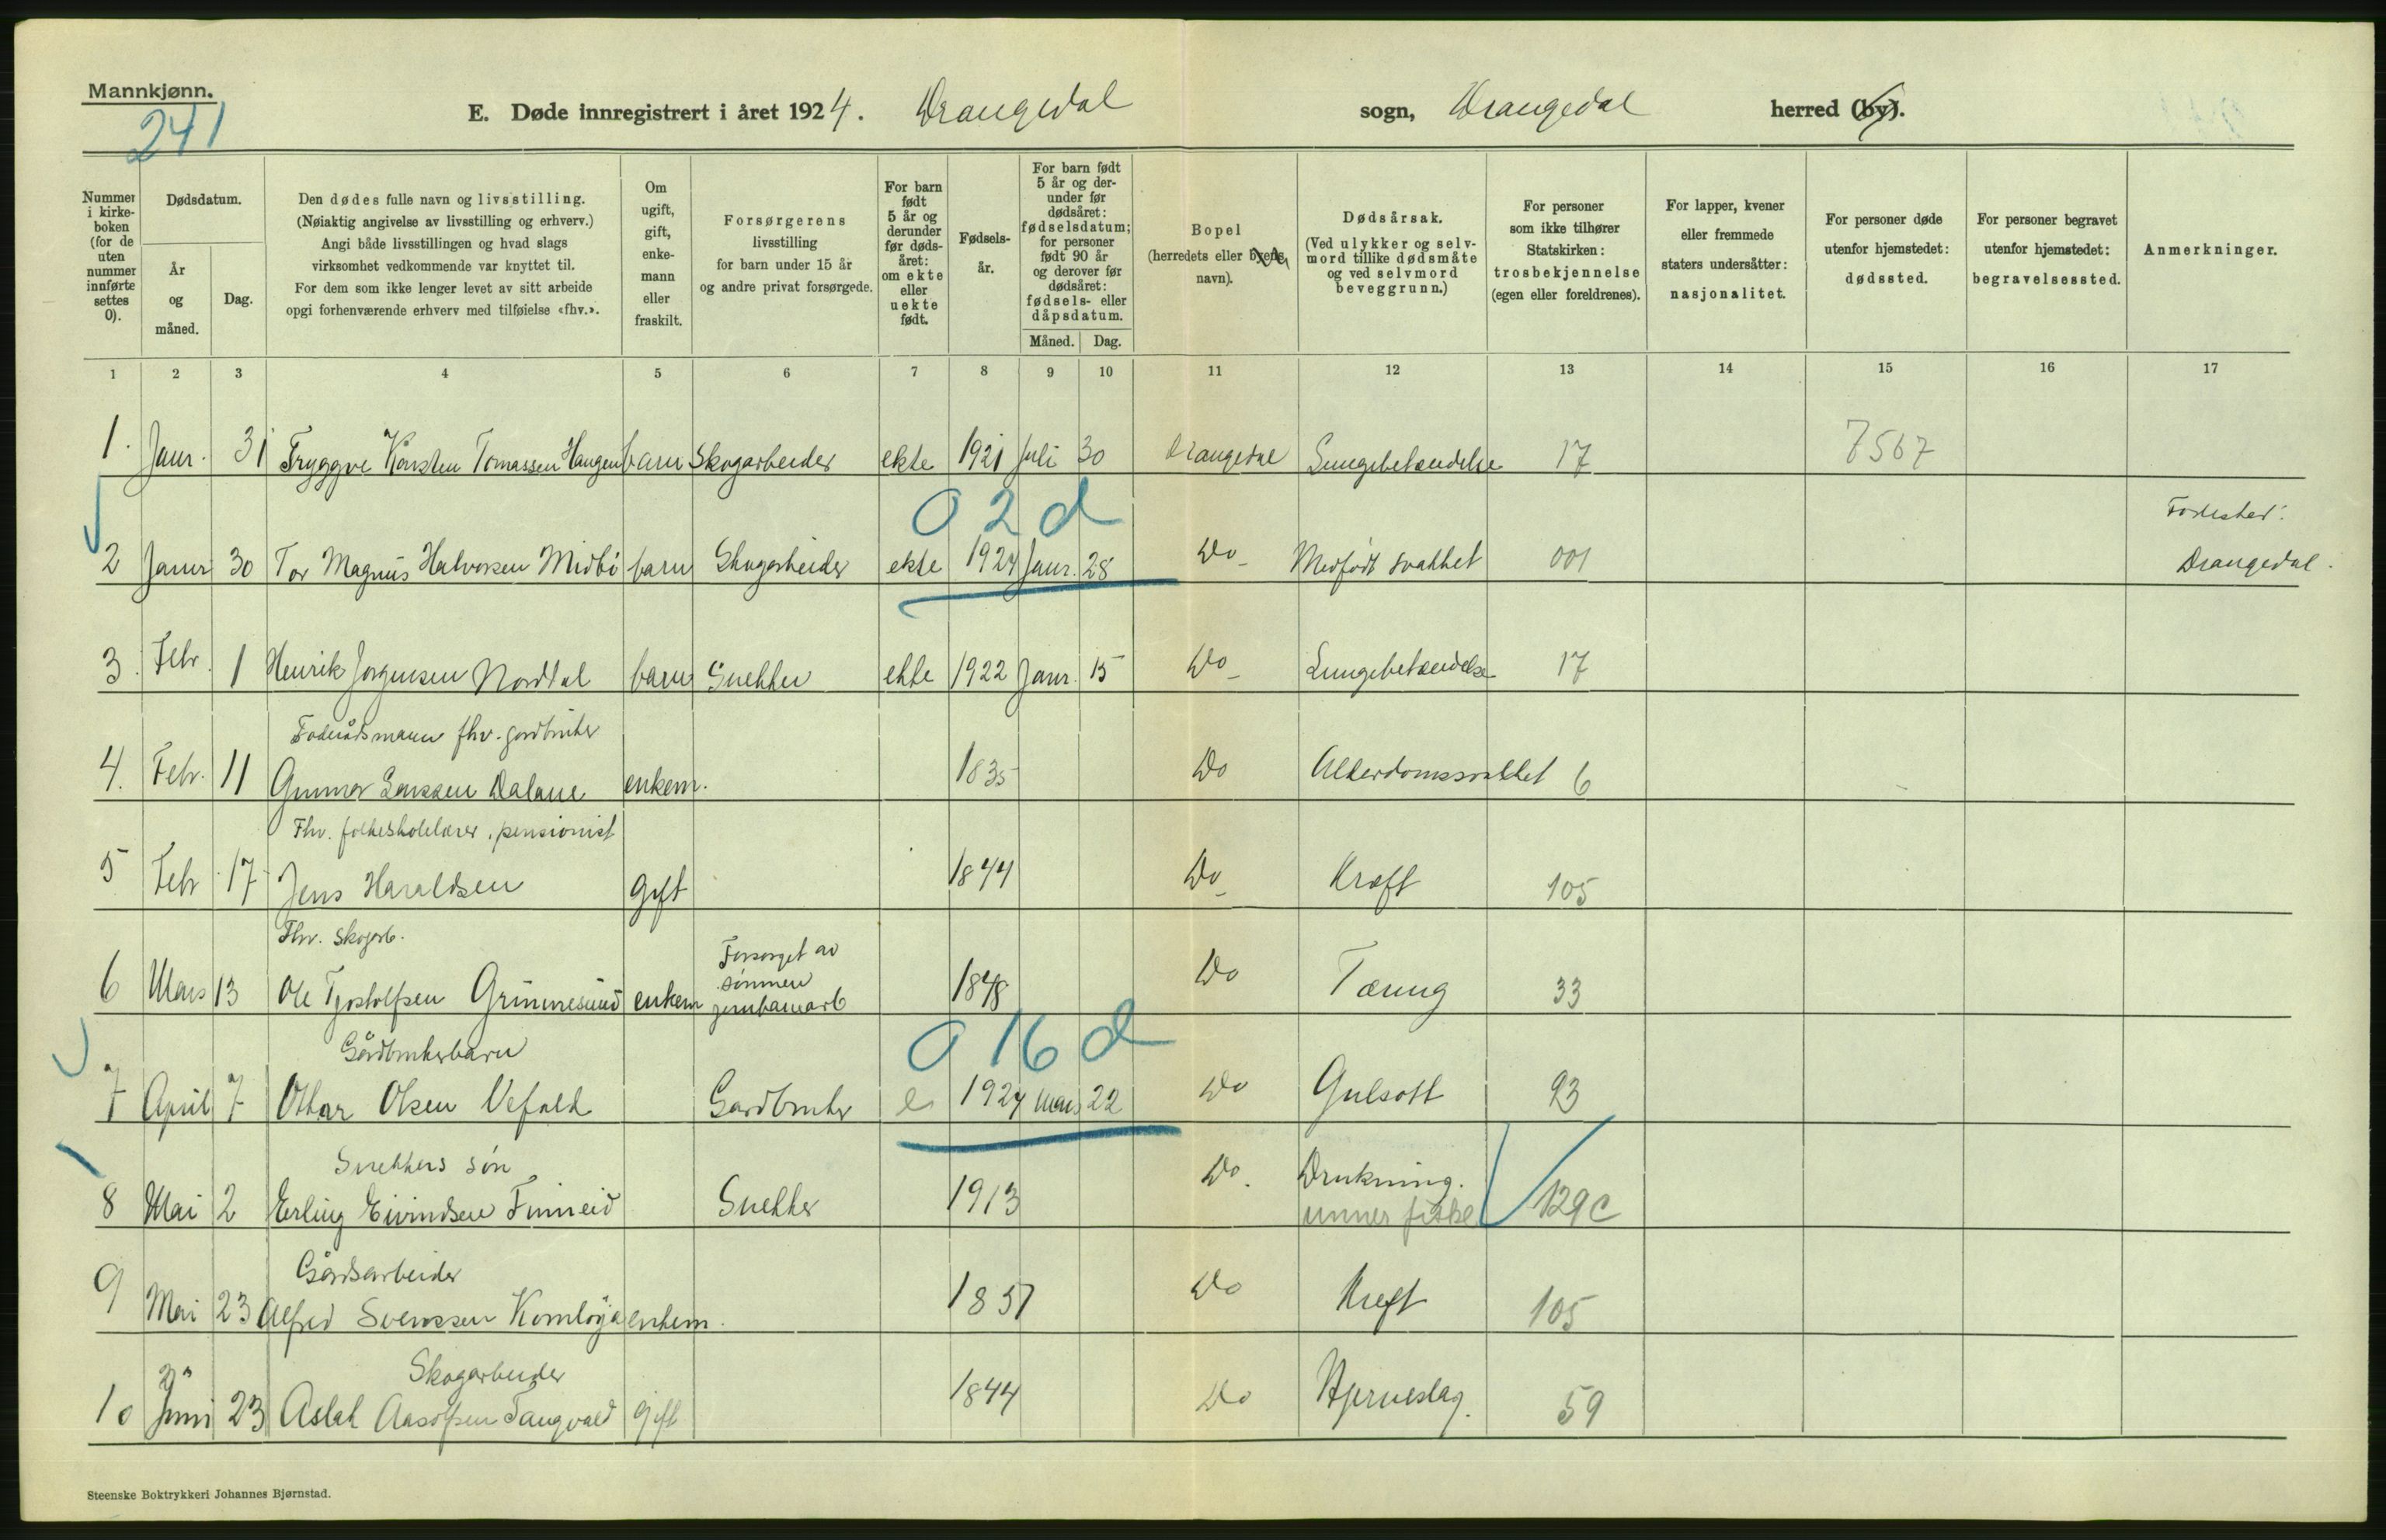 Mannkjønn.
241
E. Døde innregistrert i året 1924. Drangedal sogn, Drangedal herred (by).
Nummer i kirkeboken (for de uten nummer innførte settes 0).
Dødsdatum.
År og måned.
Dag.
Den dødes fulle navn og livsstilling.
(Nøiaktig angivelse av livsstilling og erhverv.)
Angi både livsstillingen og hvad slags
virksomhet vedkommende var knyttet til.
For dem som ikke lenger levet av sitt arbeide
opgi forhenværende erhverv med tilføielse «fhv.».
Om ugift, gift, enkemann eller fraskilt.
Forsørgerens
livsstilling
for barn under 15 år
og andre privat forsørgede.
For barn født 5 år og derunder før dødsåret: om ekte eller uekte født.
Fødselsår.
For barn født 5 år og derunder før dødsåret: fødselsdatum; for personer født 90 år og derover før dødsåret: fødsels- eller dåpsdatum.
Måned. Dag.
Bopel
(herredets eller byens
navn).
Dødsårsak.
(Ved ulykker og selvmord tillike dødsmåte og ved selvmord beveggrunn.)
For personer
som ikke tilhører
Statskirken:
trosbekjennelse
(egen eller foreldrenes).
For lapper, kvener
eller fremmede
staters undersåtter:
nasjonalitet.
For personer døde
utenfor hjemstedet:
dødssted.
For personer begravet
utenfor hjemstedet:
begravelsessted.
Anmerkninger.
1 2 3 4 5 6 7 8 9 10 11 12 13 14 15 16 17
1. Janr. 31 Tryggve Karsten Tomassen Haugen barn Skogarbeider ekte 1921 Juli 30 Drangedal Lungebetændelse 17 7567
02d
Fødested:
2 Janr 30 Tor Magnus Halvorsen Midbö barn Skogarbeider ekte 1924 Janr. 28 Do Medfødt svakhet 001 Drangedal.
3. Febr. 1 Henrik Jørgensen Nordtal barn Snekker ekte 1922 Janr. 15 Do Lungebetændelse 17
Føderådsmann fhv. gardbruker
4. Febr. 11 Gunnar Larssen Dalane enkem. 1835 Do Alderdomssvakhet 6
Fhv. folkeskolelærer, pensionist
5 Febr 17 Jens Haraldsen gift 1844 Do Kræft 105
Fhv. skogarb.
Forsørget av
sønnen
6 Mars 13 Ole Tjostolfsen Grimmesund enkem jernbanearb 1848 Do Tæring 33
Gårdbrukerbarn
016d
7 April 7 Ottar Olsen Vefald Gardbruker e 1924 Mars 22 Do Gulsott 93
Snekkers søn
8 Mai 2 Erling Eivindsen Finneid Snekker 1913 Do. Drukning.
unner fiske 129c
Gårdsarbeider
9 Mai 23 Alfred Svenssen Komløya enkem. 1857 Do Kreft 105
Skogarbeider
10 Juni 23 Aslak Aasolfsen Tangvald gift 1844 Do Hjerneslag. 59
Steenske Boktrykkeri Johannes Bjørnstad.